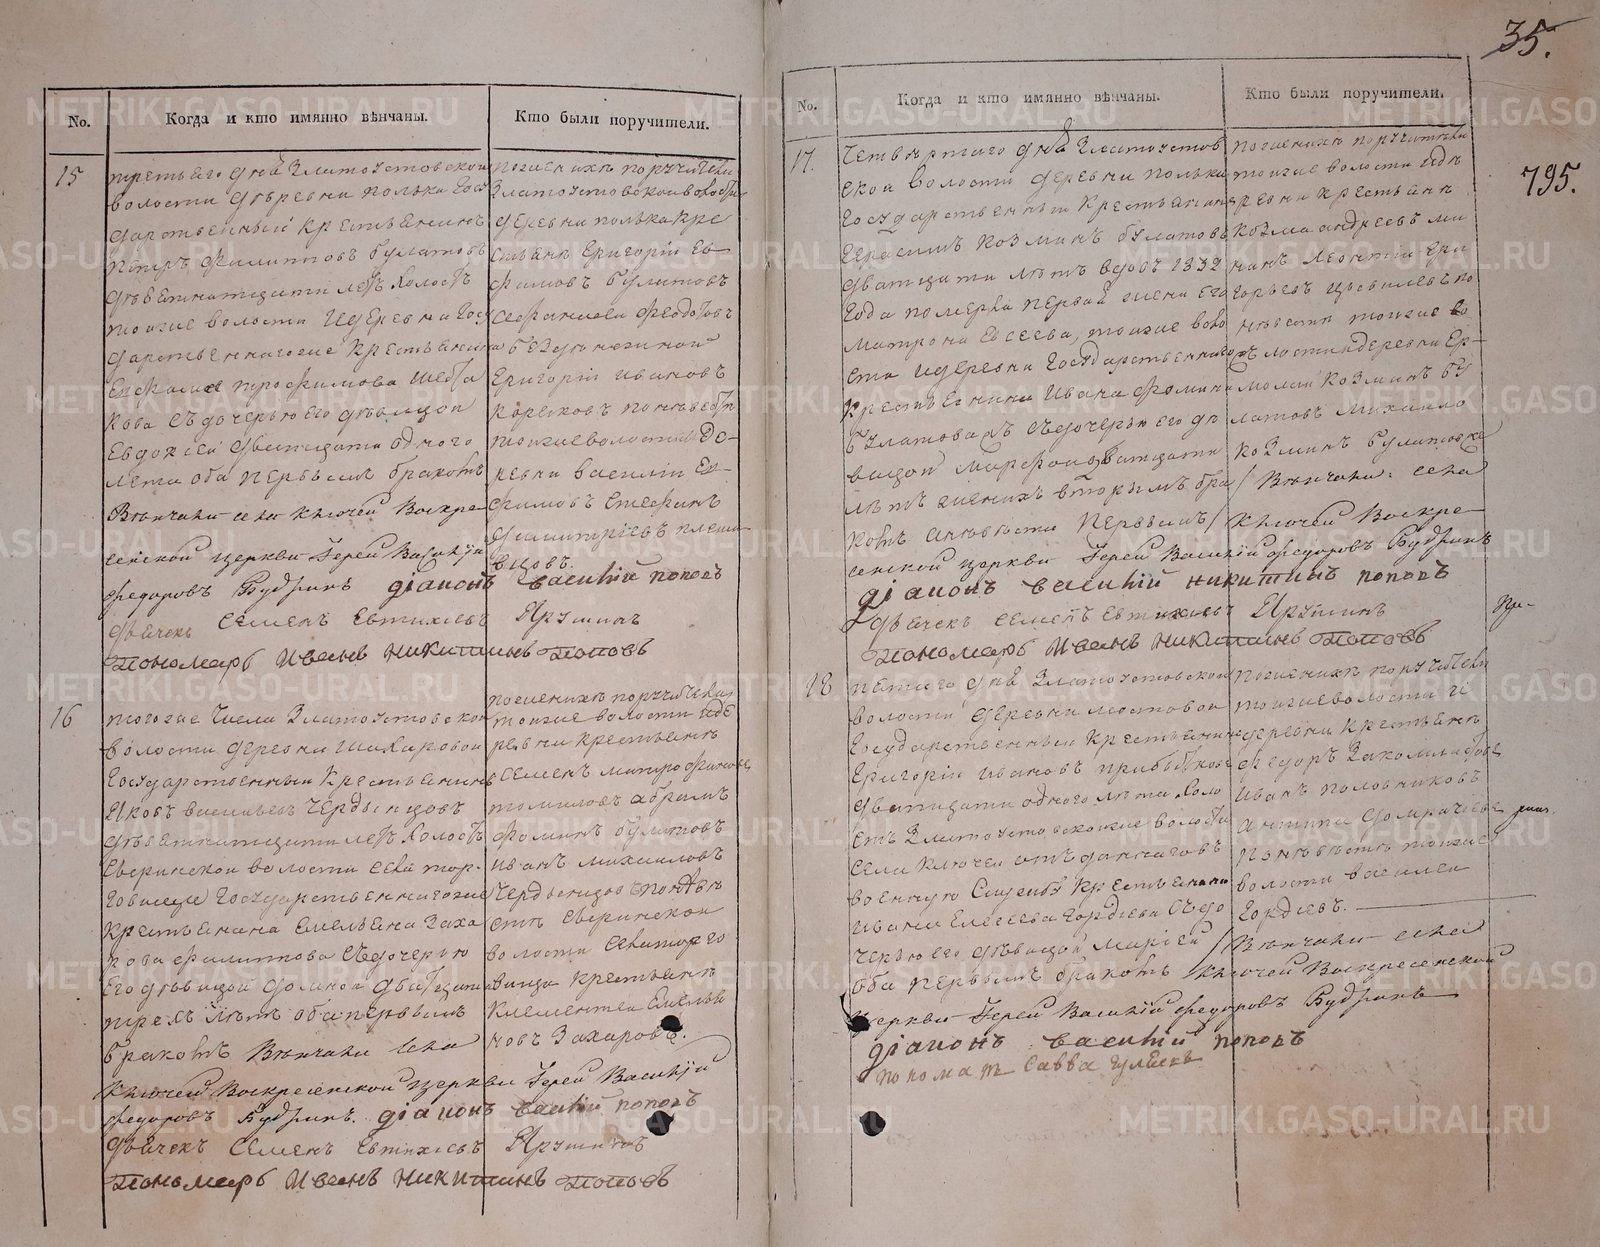 35.
795.
No.
Когда и кто имянно вѣнчаны.
Кто были поручители.
15
третьего дня Златоустовской
волости деревни полька Госу
дарственный крестьянинъ
петръ филиповъ булатовъ
девятнатцати летъ холостъ
тоиже волости идеревни Госу
дарственнагоже крестьянина
трофимова
кова съдочерью его дѣвицой
Евдокией дватцати одного
лета оба первымъ бракомъ
Вѣнчали села Ключей Воскре-
сенской церкви Іерей Василій
федоровъ Будринъ діаконъ василий поповъ
дьячекъ семенъ Евтихиевъ Ярушинъ
пономарь Иванъ никитинъ поповъ
поженихѣ поручители
Златоустовской волости
деревни полька кре
стьяне Григорий Ев-
фимовъ булатовъ
Феодотовъ
Григорий ивановъ
поневесте
тоиже волости де-
ревни василии Ев-
фимовъ стефанъ
димитриевъ плеши
вцовъ.
16
тогоже числа Златоустовской
волости деревни шахаровой
государственный крестьянинъ
Яковъ васильевъ Чердынцовъ
девятнатцати летъ холостъ
сверинской волости села тор-
говища государственнагоже
крестьянина Емельяна заха
рова филипова съдочерью
его дѣвицой домной дватцати
трехъ лѣтъ оба первымъ
бракомъ Вѣнчали села
Ключей Воскресенской церкви Іерей Василій
федоровъ Будринъ. діаконъ василий поповъ
дьячекъ семенъ Евтихиевъ Ярушинъ
пономарь Иванъ никитинъ поповъ
поженихѣ поручители
тоиже волости иде
ревни крестьяне
семенъ митрофановъ
томиловъ абрамъ
фоминъ булатовъ
иванъ михаиловъ
Чердынцовъ поневе
сте сверинской
волости села торго
вища крестьяне
Клементеи Емелья
новъ Захаровъ.
No.
Когда и кто имянно вѣнчаны.
Кто были поручители.
17
Четвертаго дня Златоустов
ской волости деревни полька
государственный крестьянинъ
герасимъ козминъ булатовъ
дватцати летъ вдовъ 1832
года померла первая жена его
матрона Евсеева, тоиже воло
сти идеревни государственнаго
крестьянина Ивана фомина
булатова съдочерью его дѣ
вицой марфой дватцати
лѣтъ женихъ вторымъ бра
комъ аневеста первымъ
Вѣнчали: села
Ключей Воскре-
сенской церкви Іерей Василій федоровъ Будринъ
діаконъ василий никитинъ поповъ
дьячекъ семенъ Евтихиевъ Ярушинъ
пономарь Иванъ никитинъ поповъ
поженихѣ поручители
тоиже волости иде
ревни крестьяне
козма андреевъ
леонтий гри
горьевъ по
невесте тоиже во
лости идеревни Ер-
молай козминъ бу
латовъ михаило
козминъ булатовы
18
пятаго дня Златоустовской
волости деревни мостовой
государственный крестьянинъ
григорий ивановъ прибытковъ
дватцати одного лета холо
стъ Златоустовскоиже волости
села ключей отъданнаговъ
военную службу крестьянина
ивана Елесеева гордиева съдо
черью его дѣвицой марией
оба первымъ бракомъ
Вѣнчали села
Ключей Воскресенской
церкви Іерей Василій федоровъ Будринъ
діаконъ василий поповъ
пономарь Савва
поженихѣ поручители
тоиже волости и
деревни крестьяне
федоръ
иванъ половниковъ
антипа
поневѣстѣ тоиже
волости василеи
гордиевъ.
При-